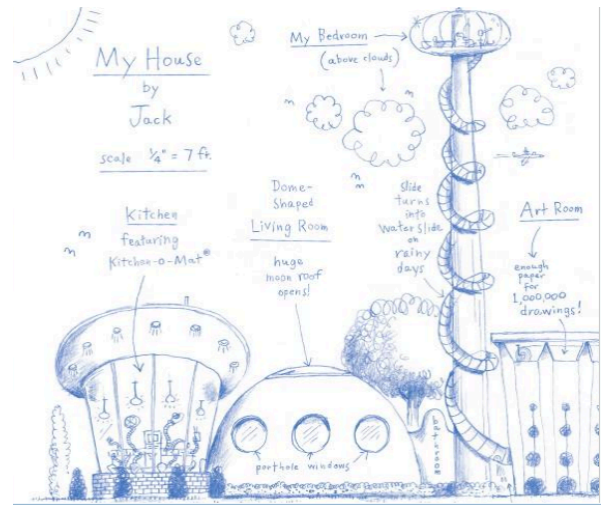 My House
by
Jack
scale ¼" = 7 ft.
My Bedroom
(above clouds)
Kitchen
featuring
Kitchen-o-Mat®
Dome-
Shaped
Living Room
huge
moon roof
opens!
slide
turns
into
water slide
on
rainy
days
Art Room
enough
paper
for
1,000,000
drawings!
porthole windows
bathroom